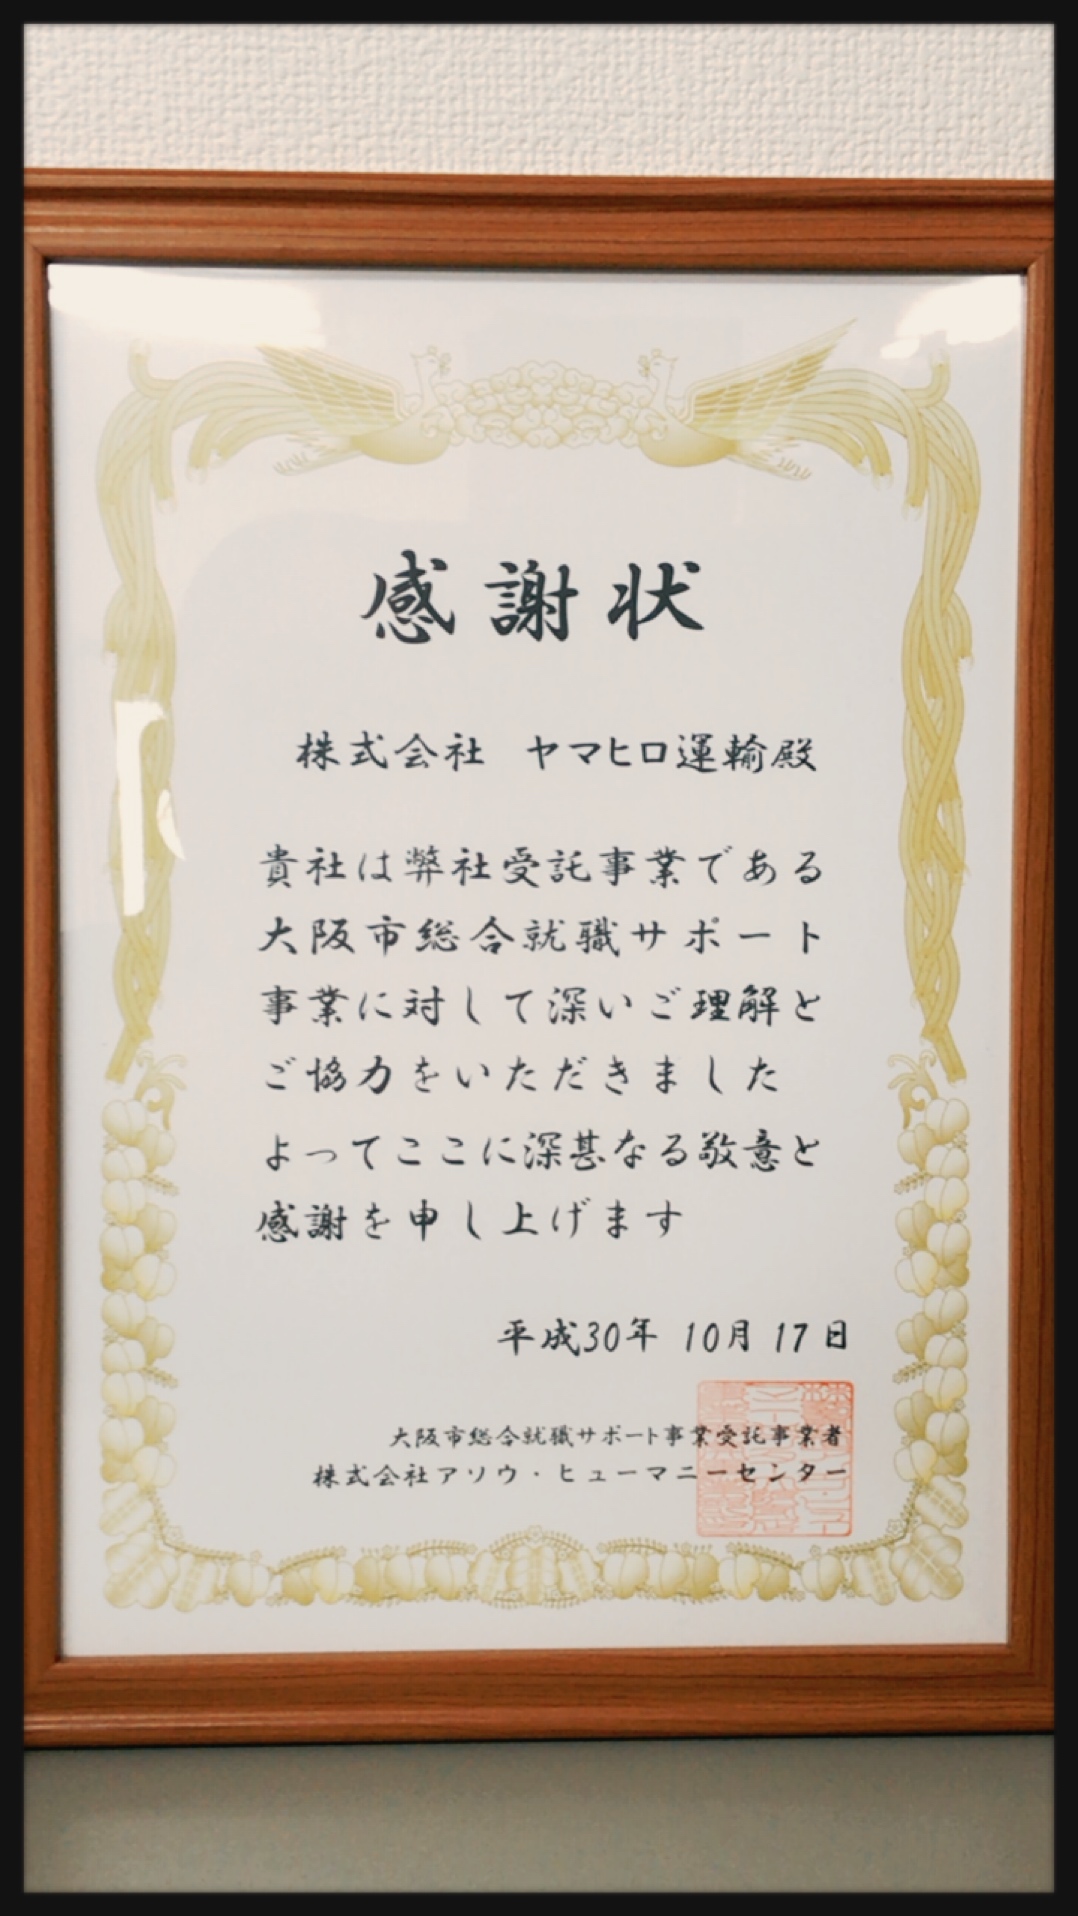 感謝状
株式会社 ヤマヒロ運輸殿
貴社は弊社受託事業である
大阪市総合就職サポート
事業に対して深いご理解と
ご協力をいただきました
よってここに深甚なる敬意と
感謝を申し上げます
平成30年 10月 17日
大阪市総合就職サポート事業受託事業者
株式会社アソウ・ヒューマニーセンター